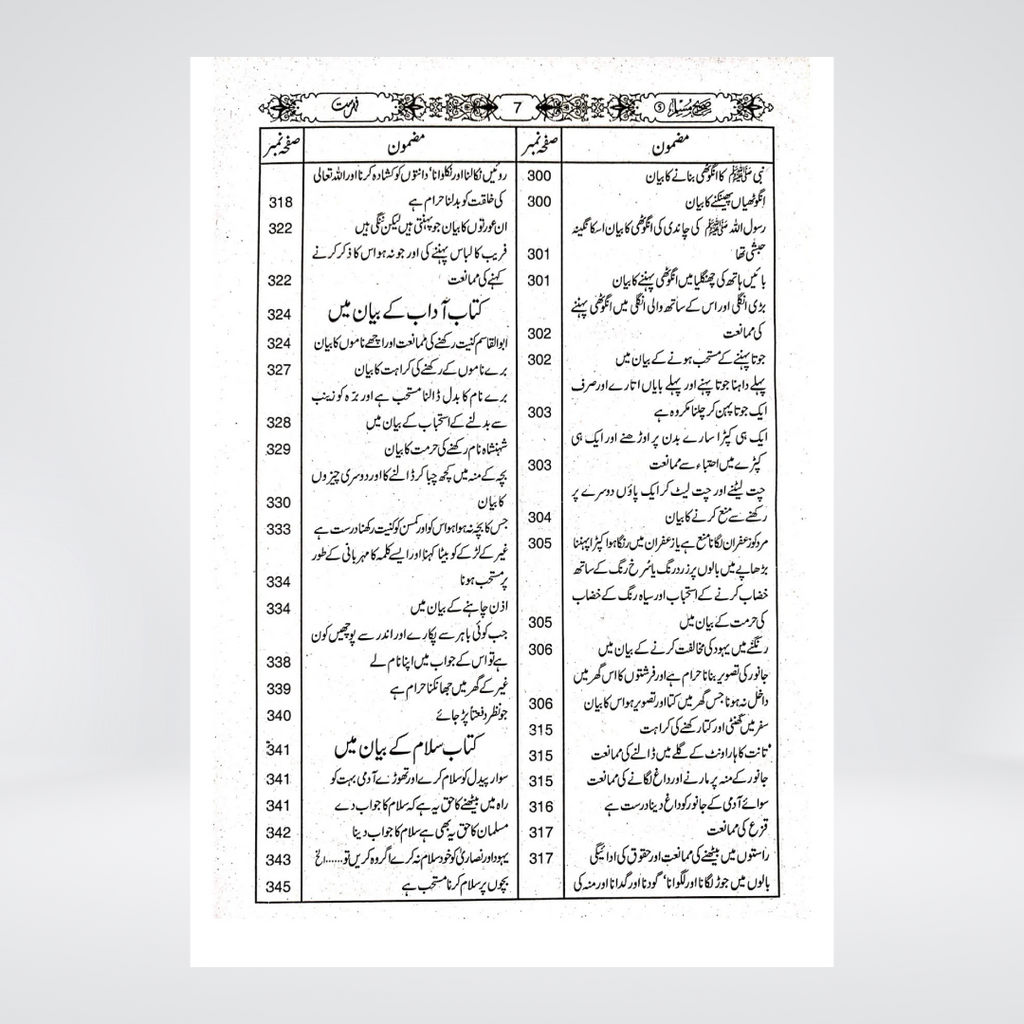 صحیح مسلم ⑤
7
فہرست
مضمون
صفحہ نمبر
نبی ﷺ کا انگوٹھی بنانے کا بیان
300
انگوٹھیاں پھینکنے کا بیان
300
رسول اللہ ﷺ کی چاندی کی انگوٹھی کا بیان اسکا نگینہ
حبشی تھا
301
بائیں ہاتھ کی چھنگلیا میں انگوٹھی پہننے کا بیان
301
بڑی انگلی اور اس کے ساتھ والی انگلی میں انگوٹھی پہننے
کی ممانعت
302
جوتا پہننے کے مستحب ہونے کے بیان میں
302
پہلے داہنا جوتا پہنے اور پہلے بایاں اتارے اور صرف
ایک جوتا پہن کر چلنا مکروہ ہے
303
ایک ہی کپڑا سارے بدن پر اوڑھنے اور ایک ہی
کپڑے میں احتباء سے ممانعت
303
چت لیٹنے اور چت لیٹ کر ایک پاؤں دوسرے پر
رکھنے سے منع کرنے کا بیان
304
مرد کو زعفران لگانا منع ہے یا زعفران میں رنگا ہوا کپڑا پہننا
305
بڑھاپے میں بالوں پر زرد رنگ یا سُرخ رنگ کے ساتھ
خضاب کرنے کے استحباب اور سیاہ رنگ کے خضاب
کی حرمت کے بیان میں
305
رنگنے میں یہود کی مخالفت کرنے کے بیان میں
306
جانور کی تصویر بنانا حرام ہے اور فرشتوں کا اس گھر میں
داخل نہ ہونا جس گھر میں کتا اور تصویر ہو اس کا بیان
306
سفر میں گھنٹی اور کتا رکھنے کی کراہت
315
تانت کا ہار اونٹ کے گلے میں ڈالنے کی ممانعت
315
جانور کے منہ پر مارنے اور داغ لگانے کی ممانعت
315
سوائے آدمی کے جانور کو داغ دینا درست ہے
316
قزع کی ممانعت
317
راستوں میں بیٹھنے کی ممانعت اور حقوق کی ادائیگی
317
بالوں میں جوڑ لگانا اور لگوانا' گودنا اور گدانا اور منہ کی
مضمون
صفحہ نمبر
روئیں نکالنا اور نکلوانا' دانتوں کو کشادہ کرنا اور اللہ تعالی
کی خلقت کو بدلنا حرام ہے
318
ان عورتوں کا بیان جو پہنتی ہیں لیکن ننگی ہیں
322
فریب کا لباس پہننے کی اور جو نہ ہو اس کا ذکر کرنے
کہنے کی ممانعت
322
کتاب آداب کے بیان میں
324
ابوالقاسم کنیت رکھنے کی ممانعت اور اچھے ناموں کا بیان
324
برے ناموں کے رکھنے کی کراہت کا بیان
327
برے نام کا بدل ڈالنا مستحب ہے اور برّہ کو زینب
سے بدلنے کے استحباب کے بیان میں
328
شہنشاہ نام رکھنے کی حرمت کا بیان
329
بچہ کے منہ میں کچھ چبا کر ڈالنے کا اور دوسری چیزوں
کا بیان
330
جس کا بچہ نہ ہوا ہو اس کو اور کمسن کو کنیت رکھنا درست ہے
333
غیر کے لڑکے کو بیٹا کہنا اور ایسے کلمہ کا مہربانی کے طور
پر مستحب ہونا
334
اذن چاہنے کے بیان میں
334
جب کوئی باہر سے پکارے اور اندر سے پوچھیں کون
ہے تو اس کے جواب میں اپنا نام لے
338
غیر کے گھر میں جھانکنا حرام ہے
339
جو نظر دفعتاً پڑ جائے
340
کتاب سلام کے بیان میں
341
سوار پیدل کو سلام کرے اور تھوڑے آدمی بہت کو
341
راہ میں بیٹھنے کا حق یہ ہے کہ سلام کا جواب دے
341
مسلمان کا حق یہ بھی ہے سلام کا جواب دینا
342
یہود اور نصاریٰ کو خود سلام نہ کرے اگر وہ کریں تو......الخ
343
بچوں پر سلام کرنا مستحب ہے
345